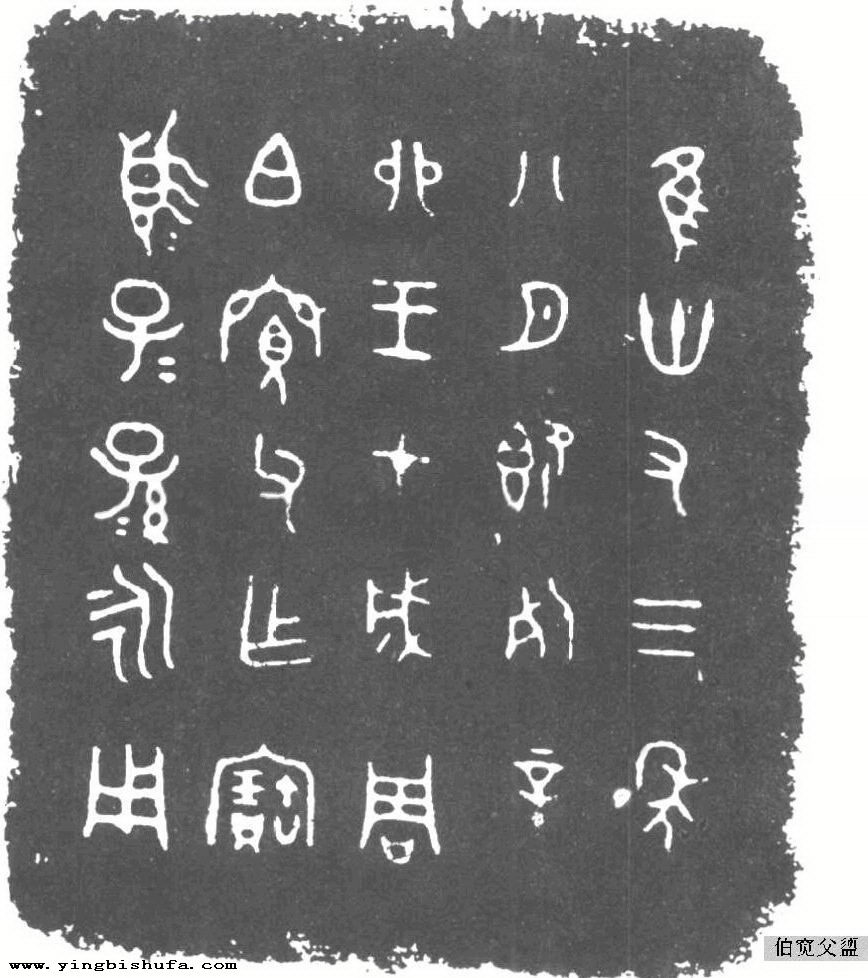 隹卅又三年
八月既死辛
卯王才成周
白寬父乍寶
須子=孫=永用
伯宽父盨
www.yingbishufa.com